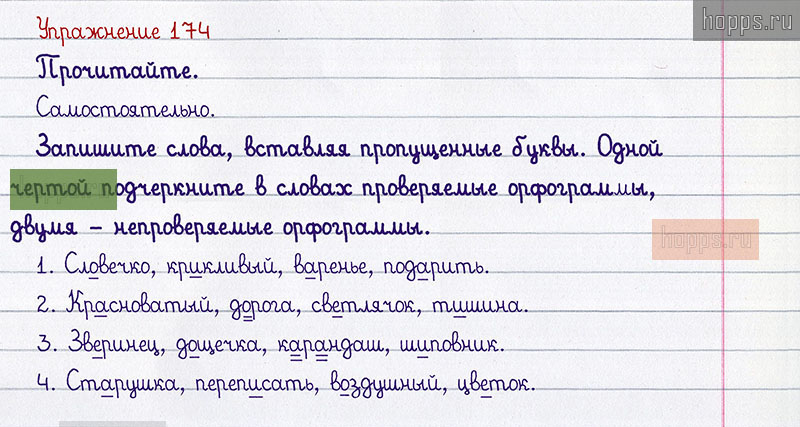 hopps.ru
Упражнение 174
Прочитайте.
Самостоятельно.
Запишите слова, вставляя пропущенные буквы. Одной
чертой подчеркните в словах проверяемые орфограммы,
двумя – непроверяемые орфограммы.
hopps.ru
1. Словечко, крикливый, варенье, подарить.
2. Красноватый, дорога, светлячок, тишина.
3. Зверинец, дощечка, карандаш, шиповник.
4. Старушка, переписать, воздушный, цветок.